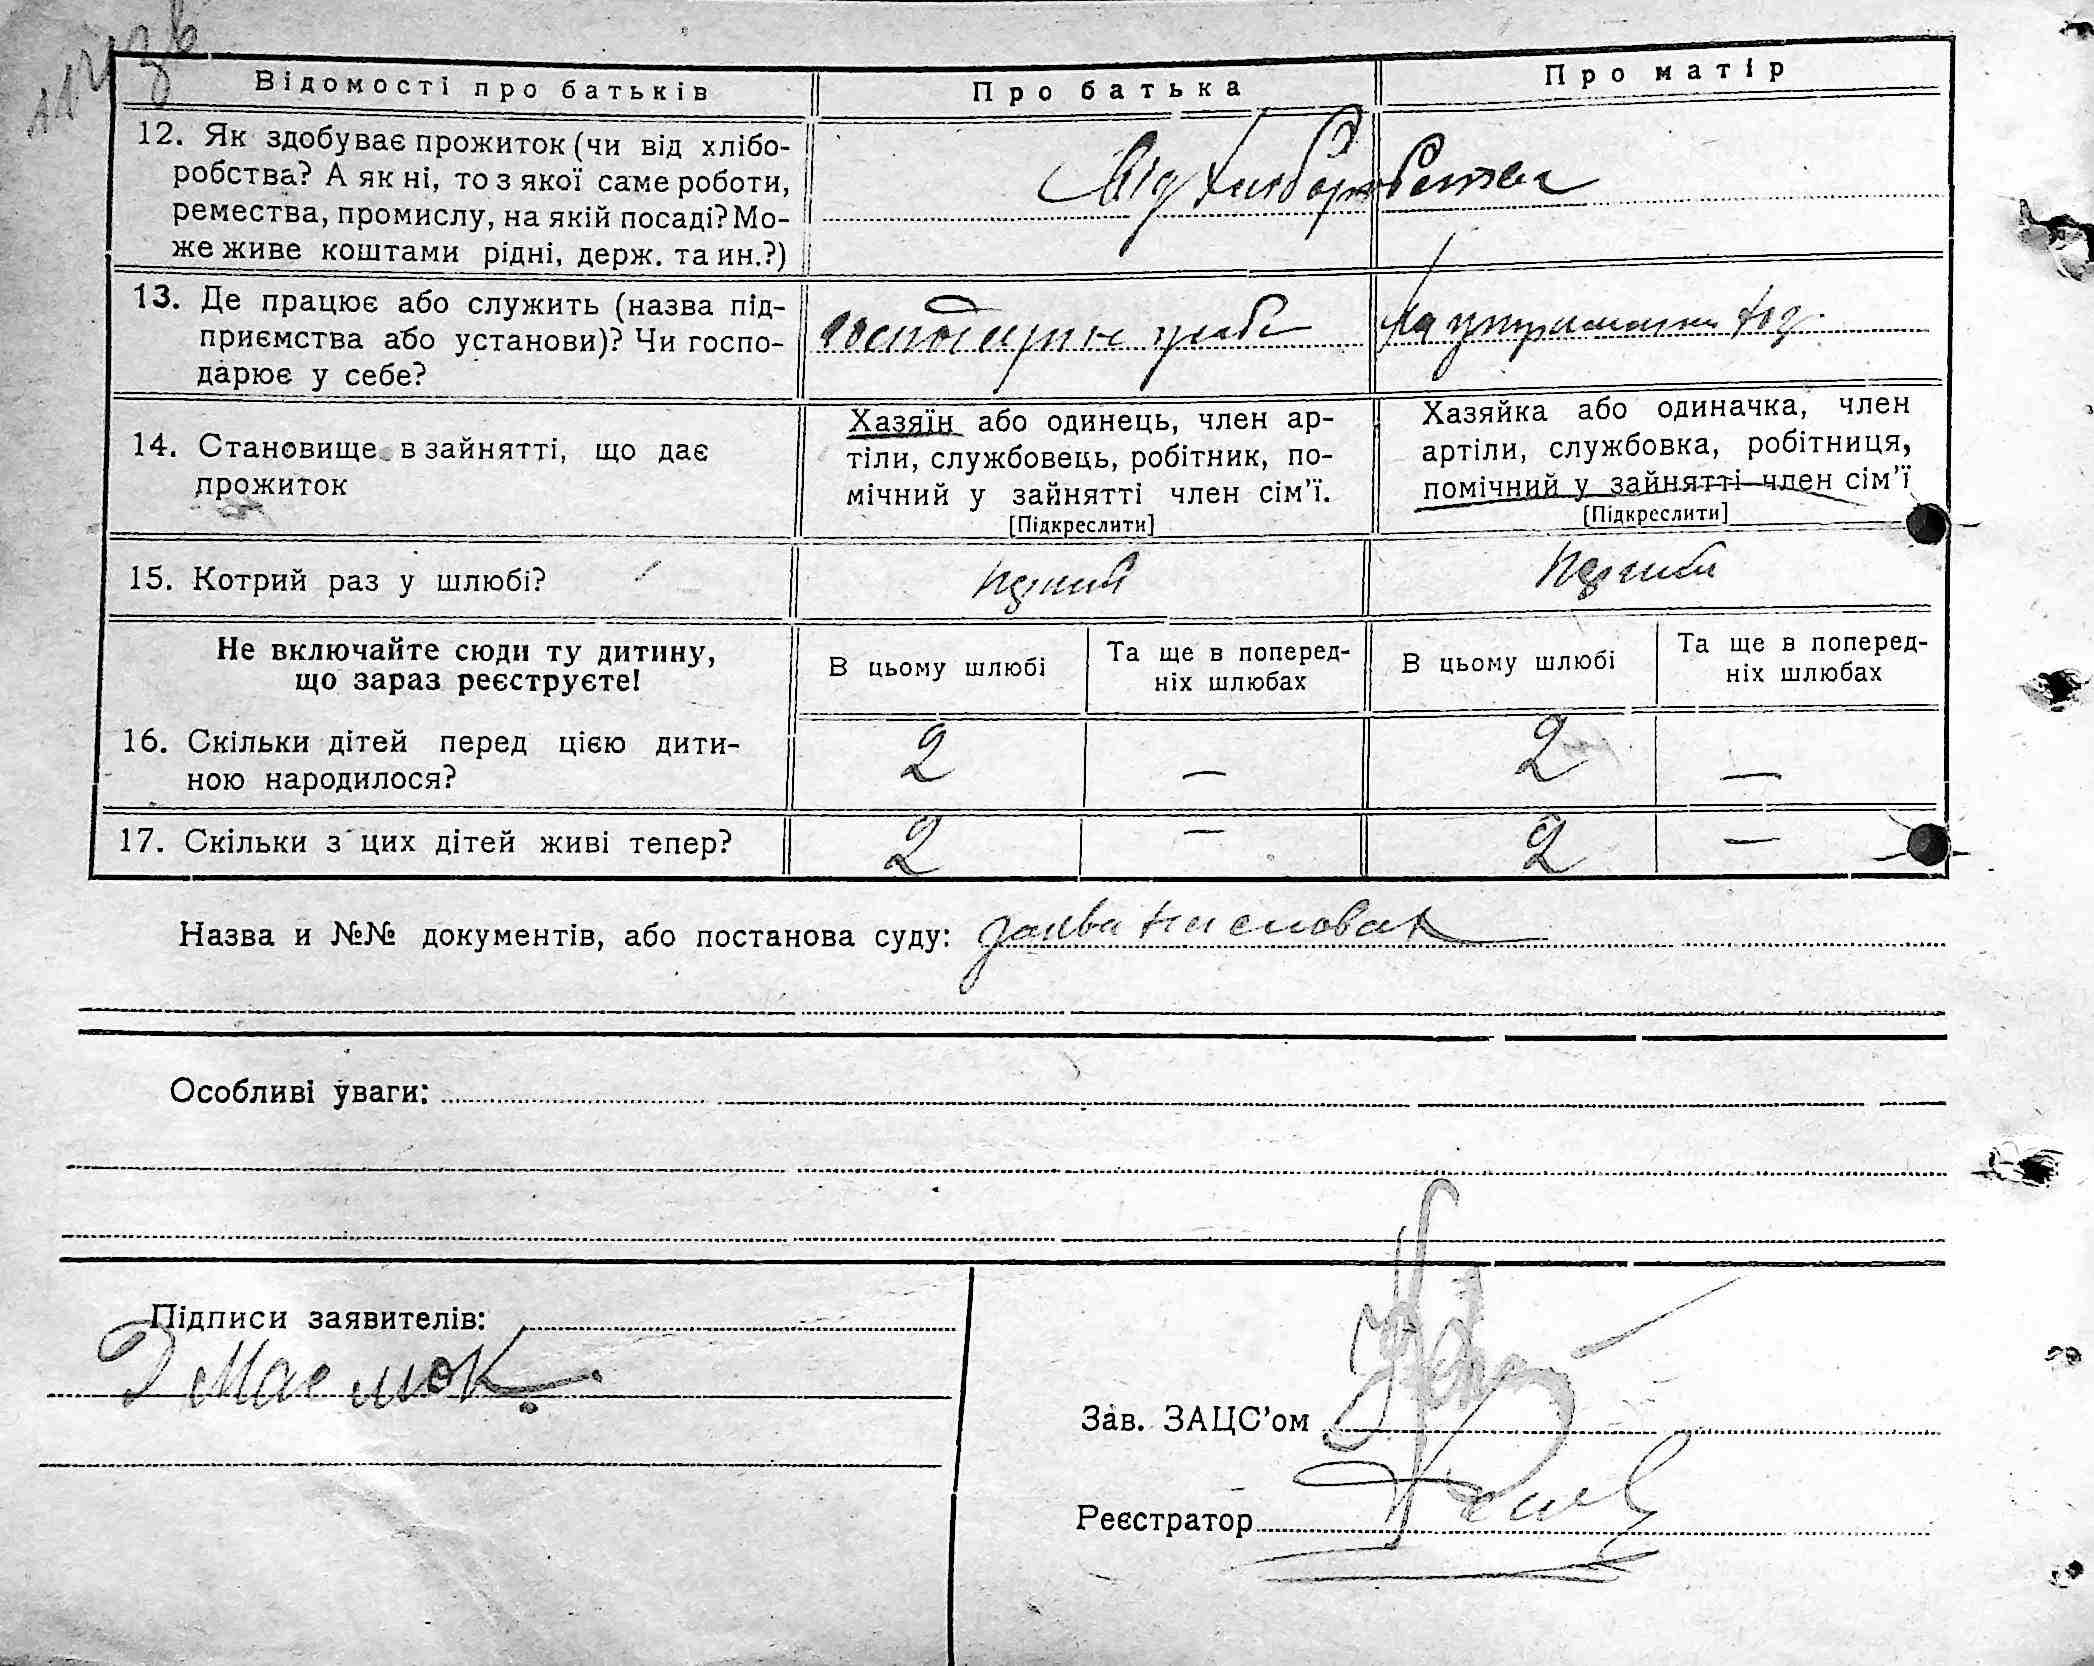 Відомості про батьків
Про батька
Про матір
12. Як здобуває прожиток (чи від хлібо-
робства? А як ні, то з якої саме роботи,
ремества, промислу, на якій посаді? Мо-
же живе коштами рідні, держ. та ин.?)
Від хлиборобства
13. Де працює або служить (назва під-
приємства або установи)? Чи госпо-
дарює у себе?
На утриманні
14. Становище в зайнятті, що дає
прожиток
Хазяїн або одинець, член ар-
тіли, службовець, робітник, по-
мічний у зайнятті член сім'ї.
[Підкреслити]
Хазяйка або одиначка, член
артіли, службовка, робітниця,
помічний у зайнятті член сім'ї
[Підкреслити]
15. Котрий раз у шлюбі?
Перший
Перший
Не включайте сюди ту дитину,
що зараз реєструєте!
В цьому шлюбі
Та ще в поперед-
ніх шлюбах
В цьому шлюбі
Та ще в поперед-
ніх шлюбах
16. Скільки дітей перед цією дити-
ною народилося?
2 — 2 —
17. Скільки з цих дітей живі тепер?
2 — 2 —
Назва и №№ документів, або постанова суду: заява
Особливі уваги:
Підписи заявителів:
Зав. ЗАЦС'ом
Реєстратор